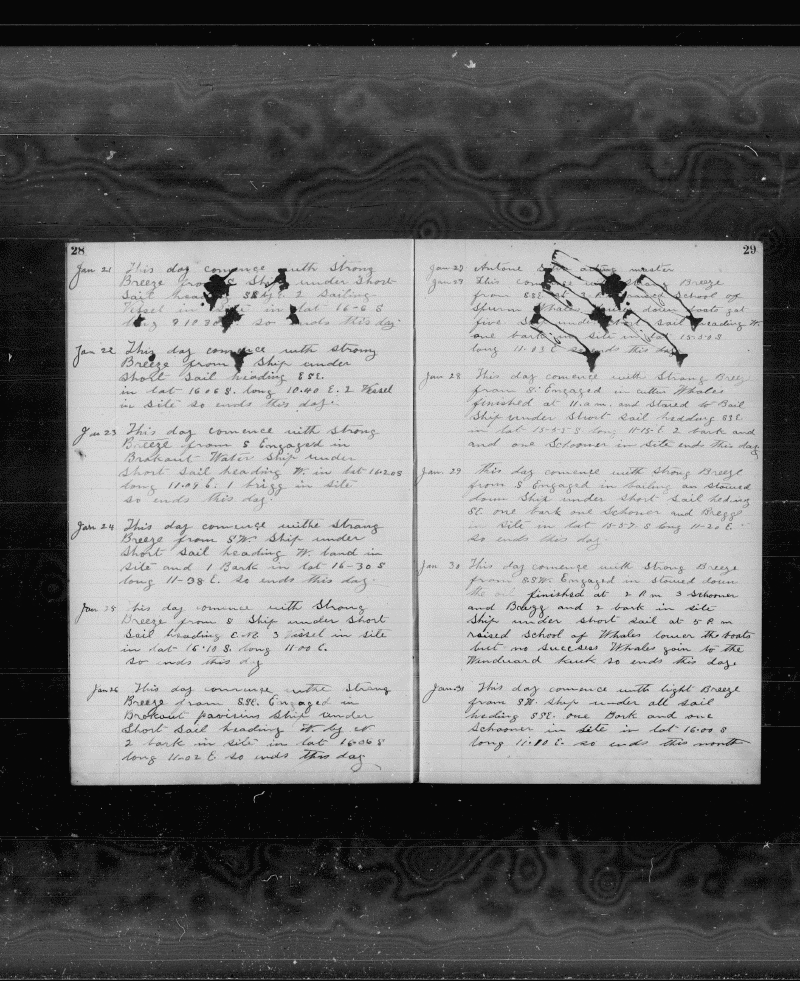 28
Jan 21 This day comence with Strong
Breeze from S Ship under Short
Sail heading SSE 2 Sailing
Vessel in Site in lat 16-6 S
long 9 10 30 so ends this day
Jan 22 This day comence with strong
Breeze from S Ship under
Short Sail heading ESE.
in lat 16.06 S. long 10.40 E. 2 Vessel
in Site so ends this day.
Jan 23 This day comence with Strong
Breeze from S Engaged in
Brakout Water Ship under
Short Sail heading W. in lat 16.20 S
long 11.09 E. 1 brigg in site
so ends this day.
Jan 24 This day comence withe Strang
Breeze from SW. Ship under
Short Sail heading W. land in
Site and 1 Bark in lat 16-30 S
long 11-38 E. so ends this day.
Jan 25 his day comence with Strong
Breeze from S Ship under Short
Sail heading 3 Vessel in site
in lat 16.10 S. long 11.00 E.
so ends this day
Jan 26 This day commence withe Strang
Breeze fram SSE. Engaged in
Brakout pavisins Ship under
Short Sail heading W. by
2 bark in Site in lat 16.06 S
long 11-02 E so ends this day
29
Jan 27 Antone acting master
Jan 27 This comence strong Breeze
from SSE raised School of
Sperm Whales down boats got
five. under short sail heading W.
one bark in site in lat 15-50 S
long 11-03 E so ends this day
Jan 28 This day comence with Strong Breez
from S. Engaged in cuttin Whales
finished at 11 a.m. and Stared to Bail
Ship under Short Sail hedding SSE
in lat 15-55 S long 11-15 E 2 bark and
and one Schooner in Site ends this day
Jan. 29 this day comence with Strong Breeze
from S Engaged in bailing an stowed
down Ship under Short Sail heding
SE. one bark one Schoner and Bregg
in Site in lat 15-57 S long 11-20 E.
so ends this day
Jan. 30 This day comence with Strong Breeze
from SSW. Engaged in stowed down
the oil finished at 2 P.m 3 Schooner
and Bragg and 2 bark in site
Ship under short sail at 5 P.m
raised School of Whales lower the boats
but no Success Whales goin to the
Winduard kuick so ends this day.
Jan. 31 This day comence with light Breeze
from SW. Ship under all sail
heding SSE. one Bark and one
Schooner in site in lat 16.00 S
long 11.10 E. so ends this month